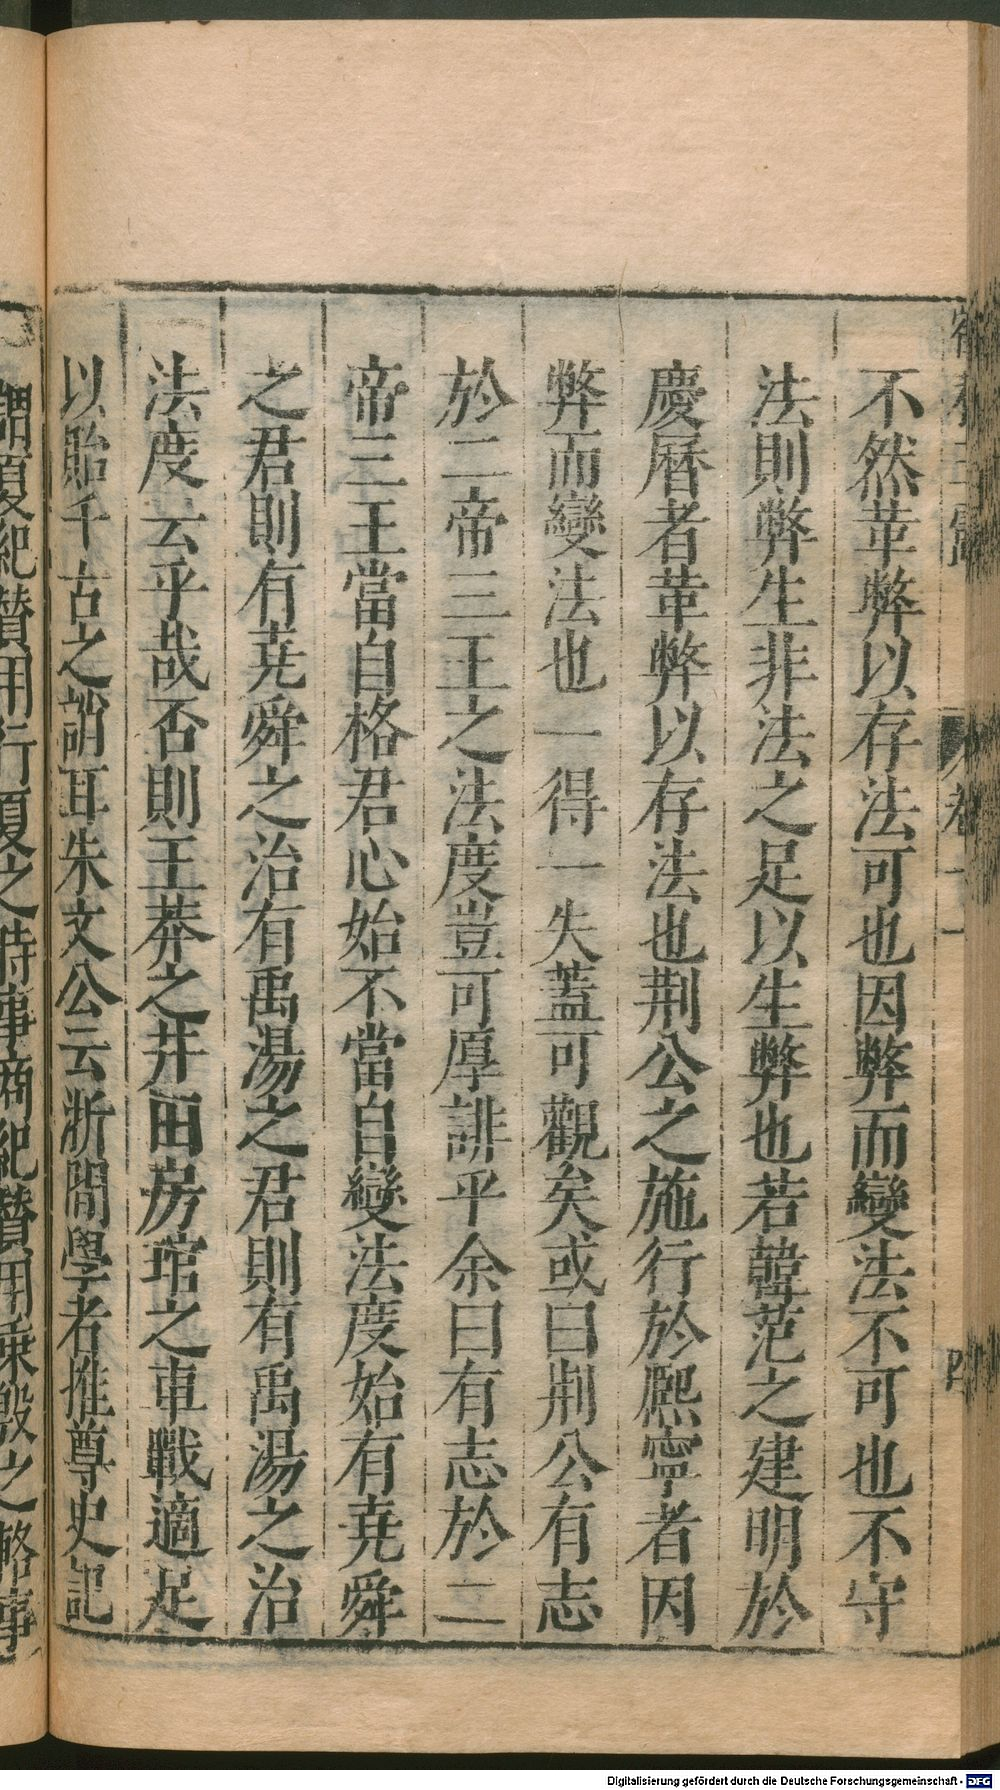 不然革弊以存法可也因弊而變法不可也不守
法則弊生非法之足以生弊也若韓范之建明於
慶曆者革弊以存法也荆公之施行於熈寧者因
弊而變法也一得一失蓋可觀矣或曰荆公有志
於二帝三王之法度豈可厚誹乎余曰有志於二
帝三王當自格君心始不當自變法度始有堯舜
之君則有堯舜之治有禹湯之君則有禹湯之治
法度云乎哉否則王莽之井田房琯之車戰適足
以貽千古之誚耳朱文公云浙間學者推尊史記
謂夏紀贊用行夏之時事商紀贊用乘殷之輅事
Digitalisierung gefördert durch die Deutsche Forschungsgemeinschaft - DFG